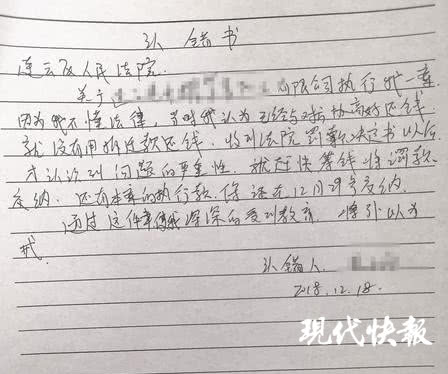 认错书
连云区人民法院:
关于 有限公司执行我一案.
因为我不懂法律,当时我认为已经与对方协商好还钱
就没有用拆迁款还钱.收到法院罚款决定书以后
才认识到问题的严重性.就赶快筹钱将罚款
交纳.还有本案的执行款.保证在12月29号交纳.
通过这件事情我深深的受到教育.将引以为
戒.
认错人.
2018.12.18.
现代快报